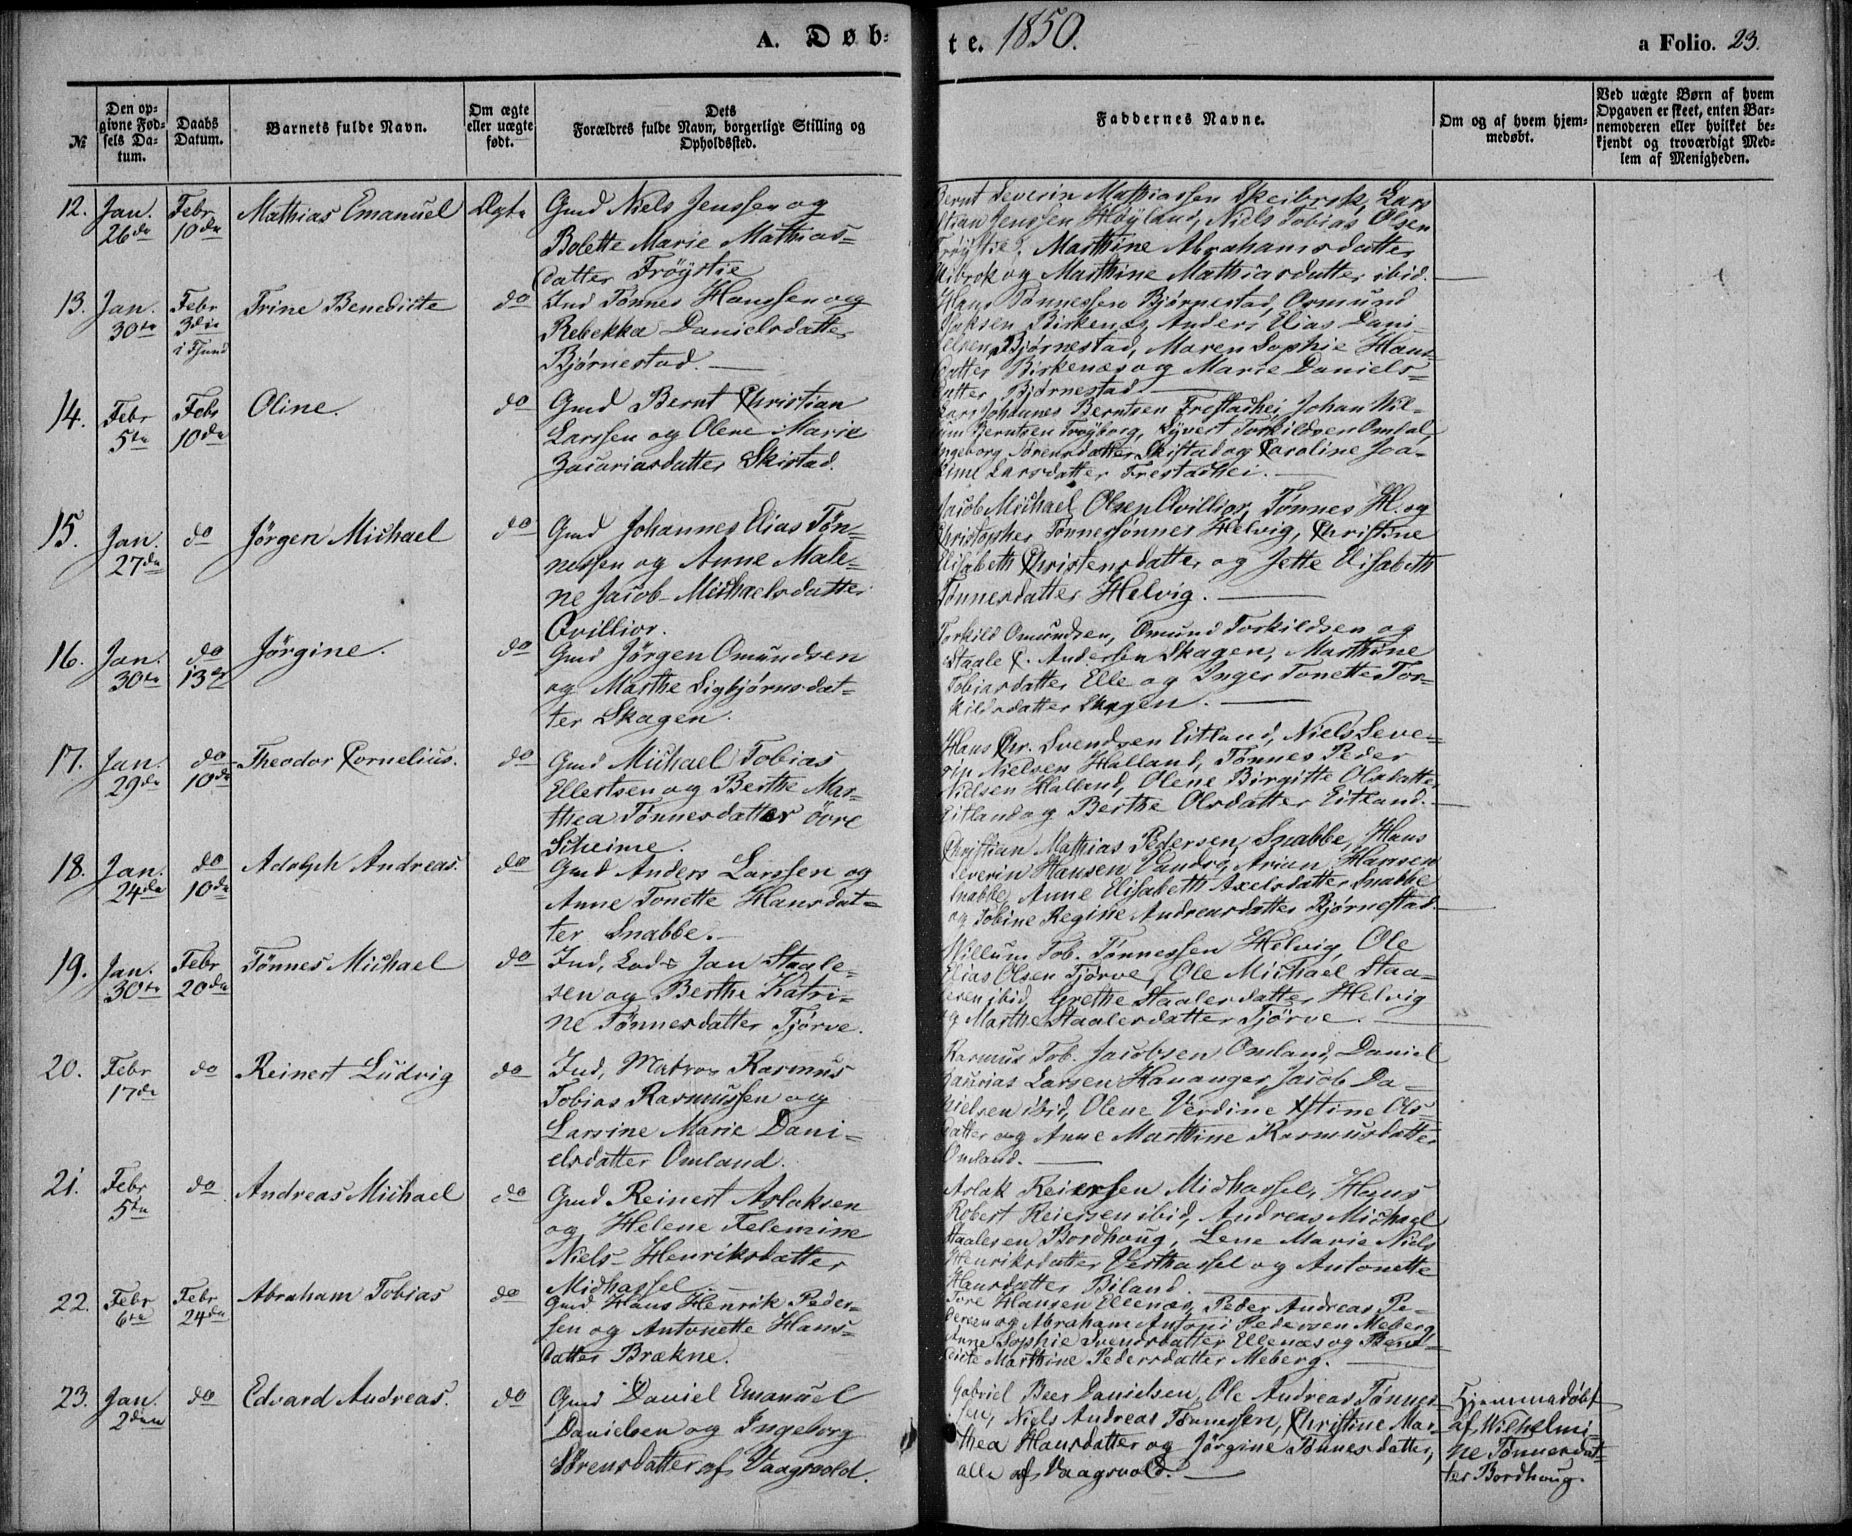 A. Døb-
te. 1850.
a Folio. 23.
№
Den op-
givne Fød-
sels Da-
tum.
Daabs
Datum.
Barnets fulde Navn.
Om ægte
eller uægte
født.
Dets
Forældres fulde Navn, borgerlige Stilling og
Opholdssted.
Faddernes Navne.
Om og af hvem hjem-
medøbt.
Ved uægte Børn af hvem
Opgaven er skeet, enten Bar-
nemoderen eller hvilket be-
kjendt og troværdigt Med-
lem af Menigheden.
12. Jan. 26de
Febr 10de
Mathias Emanuel
Ægte
Gmd Niels Jenssen og
Bolette Marie Mathias-
datter Trøystie
Bernt Severin Mathiassen Skeibrok, Lars
Stian Jenssen Høyland, Niels Tobias Olsen
Trøystie, Marthine Abrahamsdatter
og Marthine Mathiasdatter ibid.
13. Jan. 30te
Febr 3die i
Trine Benedicte
do
Ind Tønnes Hanssen og
Rebekka Danielsdatter
Bjørnestad.
Hans Tønnessen Bjørnestad, Ormund
Birkenes, Anders Elias Dani-
elsen Bjørnestad, Maren Sophie Hans-
datter Birkenæs og Marie Daniels-
datter Bjørnestad
14. Febr 5te
Febr 10de
Oline.
do
Gmd Bernt Christian
Larssen og Olene Marie
Zacariasdatter Skistad.
Lars Johannes Berntsen Frestadhei, Johan Wil-
lum Berntsen Trøyborg, Syvert Torkildsen Omdal,
Ingeborg Sørensdatter Skistad og Caroline Joa-
kime Larsdatter Frestadhei.
15. Jan. 27de
do
Jørgen Michael
do
Gmd Johannes Elias Tøn-
nessen og Anne Male-
ne Jacob-Michaelsdatter
Qvillior.
Jacob Michael Olsen Qvillior, Tønnes H. og
Christopher Tønnessønner Helvig, Christine
Elisabeth Christensdatter og Jette Elisabeth
Tønnesdatter Helvig.
16. Jan. 30te
do 13de
Jørgine.
do
Gmd Jørgen Omundsen
og Marthe Sigbjørnsdat-
ter Skagen.
Torkild Omundsen, Omund Torkildsen og
Staale C. Andersen Skagen, Marthine
Tobiasdatter Elle og Inger Tonette Tor-
kildsdatter Skagen.
17. Jan. 29de
do 10de
Theodor Cornelius.
do
Gmd Michael Tobias
Ellertsen og Berthe Mar-
thea Tønnesdatter øvre
Scheime.
Hans Chr. Svendsen Eitland, Niels Seve-
rin Nielsen Halland, Tønnes Peder
Nielsen Halland, Olene Birgitte Olsdatter
Eitland og Berthe Olsdatter Eitland.
18. Jan. 24de
do 10de
Adolph Andreas.
do
Gmd Anders Larssen og
Anne Tonette Hansdat-
ter Snabbe.
Christian Mathias Pedersen Snabbe, Hans
Severin Hansen Vandrø, Arian Hansen
Snabbe, Anne Elisabeth Axelsdatter Snabbe
og Tobine Regine Andreasdatter Bjørnestad
19. Jan. 30te
Febr 20de
Tönnes Michael
do
Ind, Lods Jan Staale-
sen og Berthe Katri-
ne Tønnesdatter Tjørve.
Willum Tob. Tønnessen Helvig, Ole
Elias Olsen Tjørve, Ole Michael Staa-
lesen ibid, Grethe Staalesdatter Helvig
og Marthe Staalesdatter Tjörve.
20. Febr 17de
do
Reinert Ludvig
do
Ind, Matros Rasmus
Tobias Rasmussen og
Larsine Marie Dani-
elsdatter Omland.
Rasmus Tob. Jacobsen Omland, Daniel
Larsen Hananger, Jacob Da-
nielsen ibid, Olene Verdine Xstine Ols-
datter og Anne Marthine Rasmusdatter
Omland.
21. Febr 5te
do
Andreas Michael
do
Gmd Reinert Aslaksen
og Helene Telemine
Niels-Henriksdatter
Midhassel
Aslak Reiersen Midhassel, Hans
Robert Reiersen ibid, Andreas Michael
Staalesen Bordhoug, Lene Marie Niels
Henriksdatter Vesthassel og Antonette
Hansdatter Biland.
22. Febr 6te
Febr 24de
Abraham Tobias
do
Gmd Hans Henrik Peder-
sen og Antonette Hans-
datter Brækne.
Tore Hansen Ellenæs, Peder Andreas Pe-
dersen og Abraham Antoni Pedersen Meberg
Anne Sophie Svendsdatter Ellenæs og Bene-
dicte Marthine Pedersdatter Meberg.
23. Jan. 2den
do
Edvard Andreas.
do
Gmd Daniel Emanuel
Danielsen og Ingeborg
Sörensdatter af Vaagsvold.
Gabriel Beer Danielsen, Ole Andreas Tønnes-
sen, Niels Andreas Tønnessen, Christine Mar-
thea Hansdatter og Jörgine Tønnesdatter,
alle af Vaagsvold.
Hjemmedøbt
af Wilhelmi-
ne Tønnesdat-
ter Bordhoug.